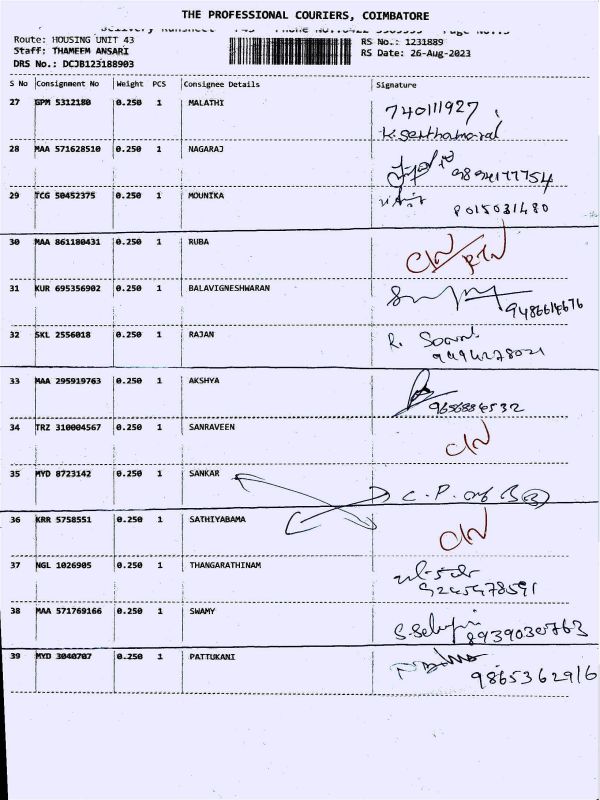 THE PROFESSIONAL COURIERS, COIMBATORE
Route: HOUSING UNIT 43
RS No.: 1231889
Staff: THAMEEM ANSARI
RS Date: 26-Aug-2023
DRS No.: DCJB123188903
S No Consignment No Weight PCS Consignee Details Signature
27 GPM 5312180 0.250 1 MALATHI
740111927
28 MAA 571628510 0.250 1 NAGARAJ
9894177754
29 TCG 50452375 0.250 1 MOUNIKA
8015031480
30 MAA 861180431 0.250 1 RUBA
31 KUR 695356902 0.250 1 BALAVIGNESHWARAN
9486614676
32 SKL 2556018 0.250 1 RAJAN
R.
33 MAA 295919763 0.250 1 AKSHYA
34 TRZ 310004567 0.250 1 SANRAVEEN
35 MYD 8723142 0.250 1 SANKAR
C.P.
36 KRR 5758551 0.250 1 SATHIYABAMA
37 NGL 1026905 0.250 1 THANGARATHINAM
9245978591
38 MAA 571769166 0.250 1 SWAMY
8939030763
39 MYD 3040707 0.250 1 PATTUKANI
9865362916